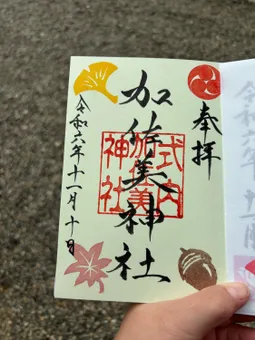 奉拝
加佐美神社
式内
加佐美
神社
令和六年十一月十日
令和六年